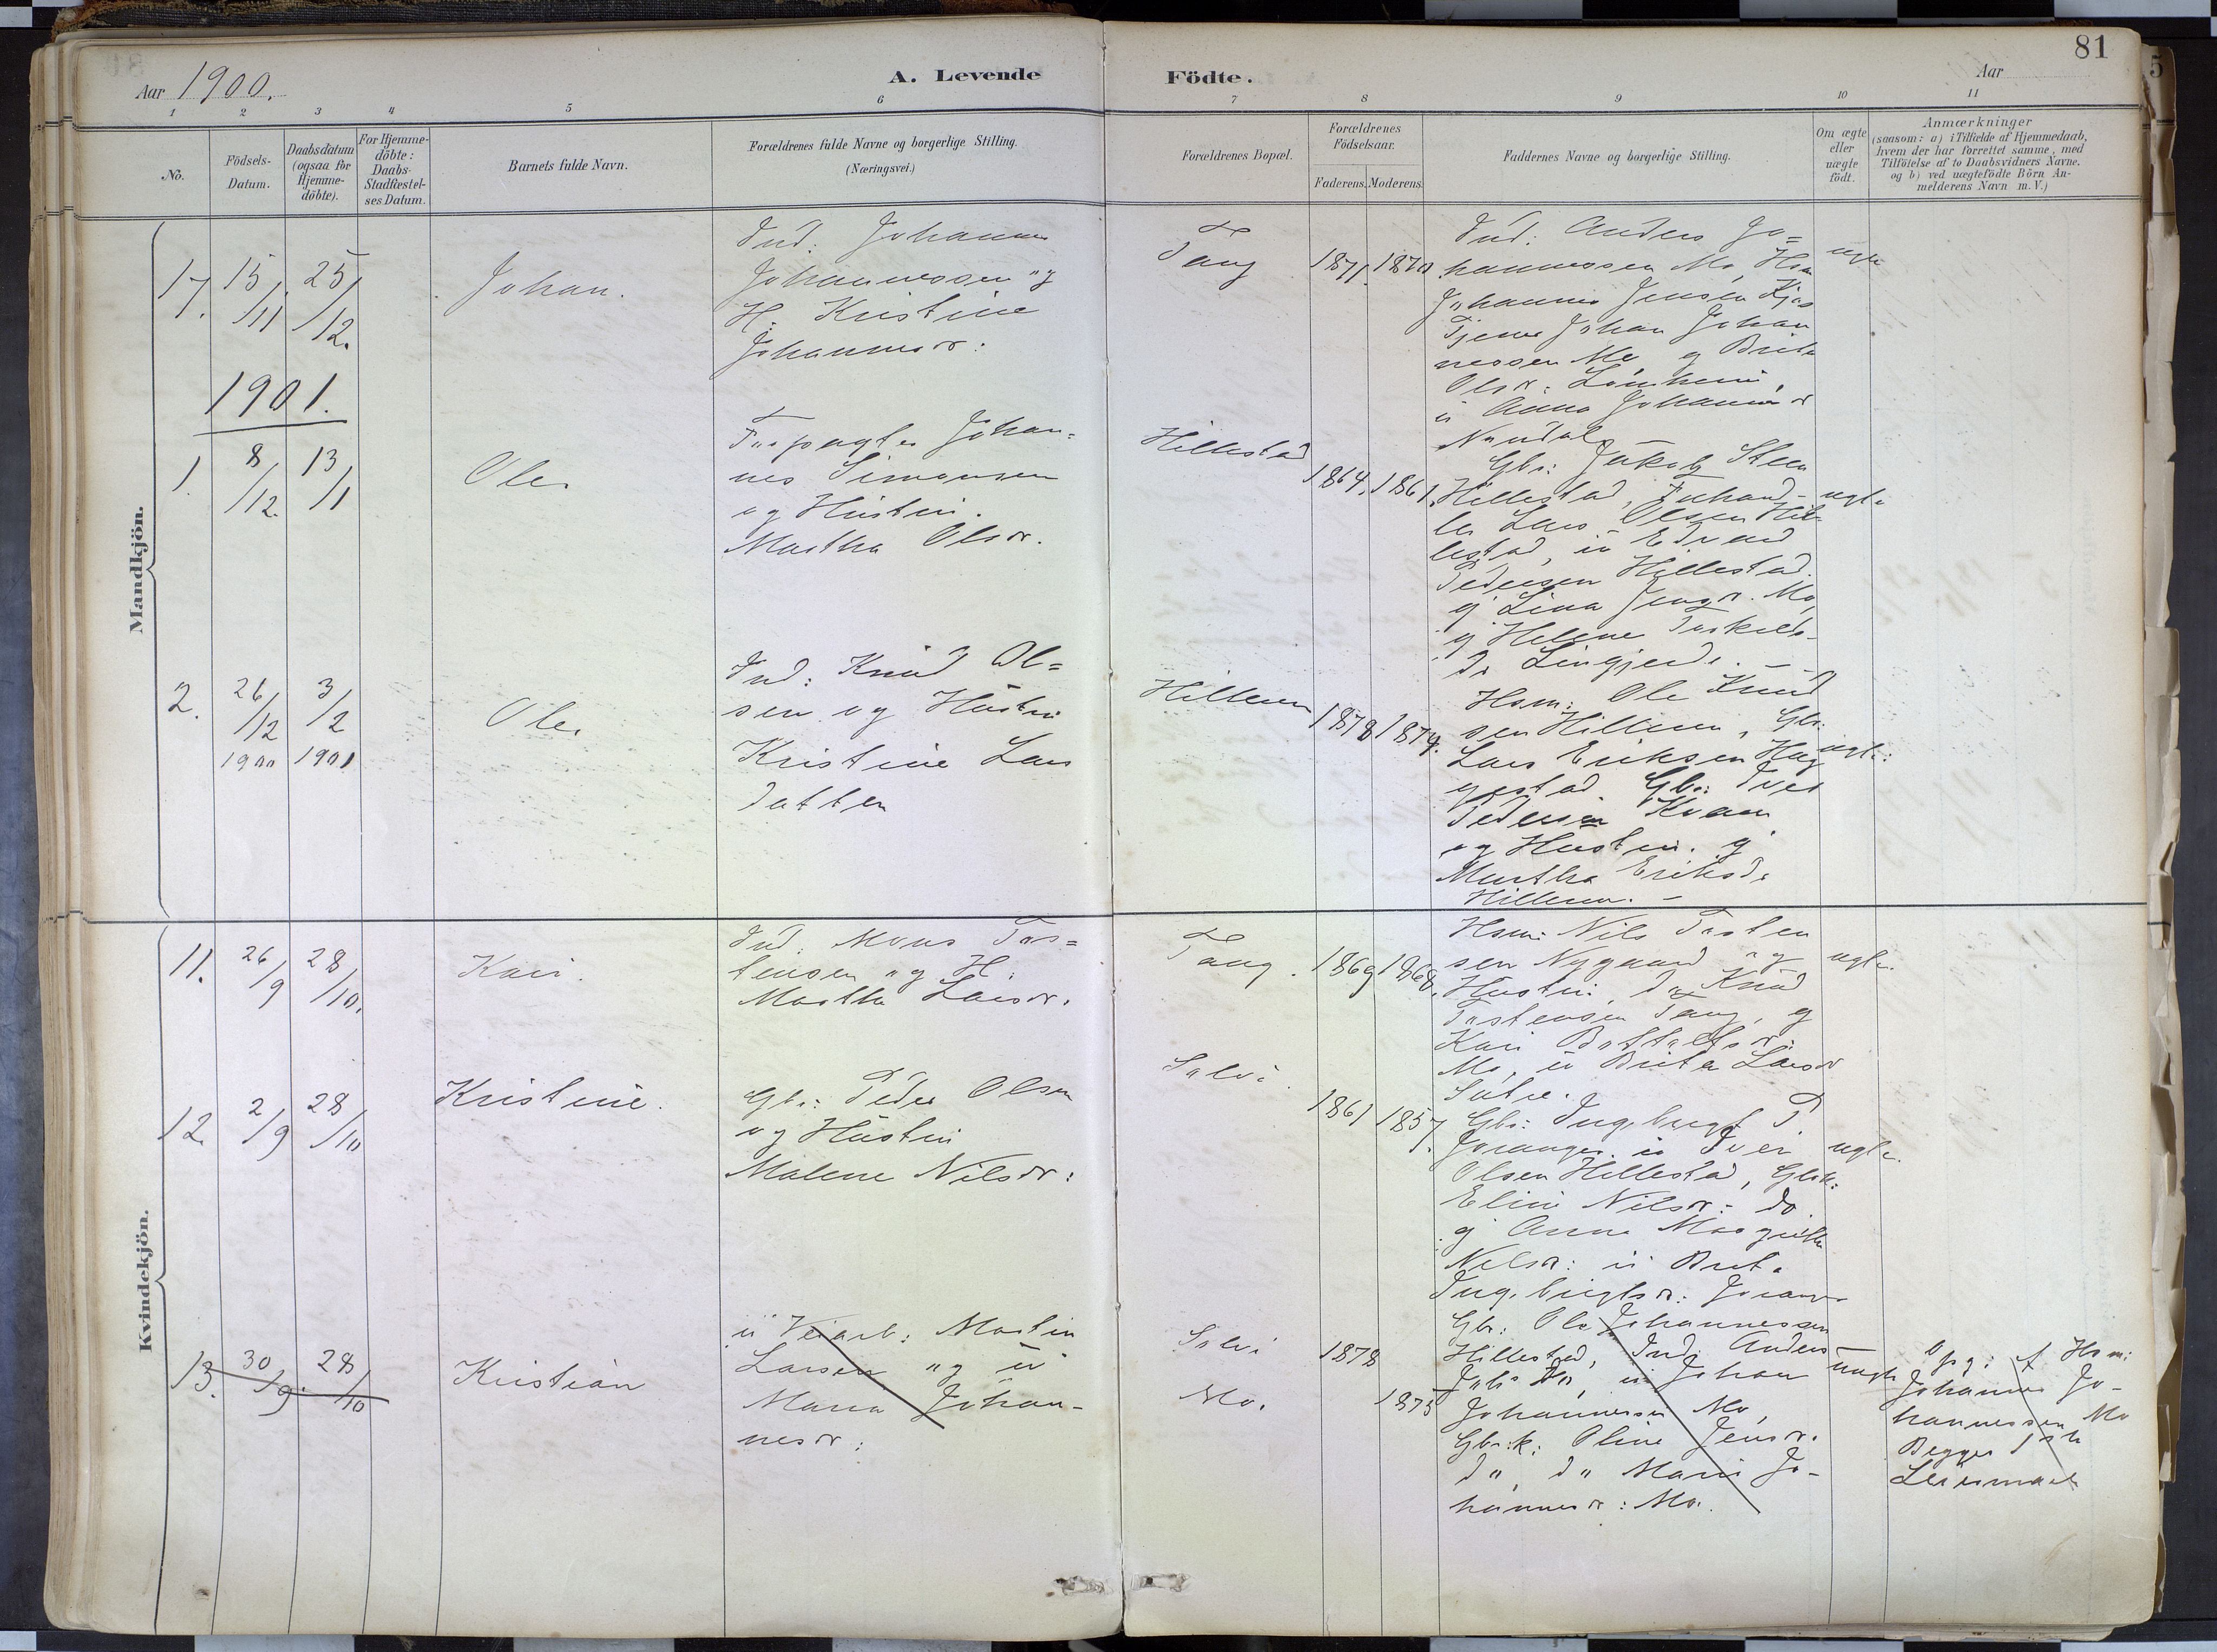 81
Aar 1900.
A. Levende Födte.
Aar
1 2 3 4 5 6 7 8 9 10 11
No.
Födsels-
Datum.
Daabsdatum
(ogsaa for
Hjemme-
döbte).
For Hjemme-
döbte:
Daabs-
Stadfæstel-
ses Datum.
Barnets fulde Navn.
Forældrenes fulde Navne og borgerlige Stilling.
(Næringsvei.)
Forældrenes Bopæl.
Forældrenes
Födselsaar.
Faderens. Moderens.
Faddernes Navne og borgerlige Stilling.
Om ægte
eller
uægte
födt.
Anmærkninger
(saasom: a) i Tilfælde af Hjemmedaab,
hvem der har forrettet samme, med
Tilföielse af to Daabsvidners Navne.
og b) ved uægtefödte Börn An-
melderens Navn m. V.)
Mandkjön.
17. 15/11 25/12. Johan.
Ind: Johannes
Johannessen og
H. Kristine
Johannesdr:
Tang 1871. 1870
Ind: Anders Jo=
hannessen Mo, Hsm
Johannes Jensen
Tjener Johan Johan
nessen Mo, og Brita
Olsdr:
u Anna Johannesdr
ægte
1901.
1. 8/12. 13/1 Ole.
Forpagter Johan=
nes Simonsen
og Hustru.
Martha Olsdr.
Hillestad 1864. 1861.
Gbr: Jakob Steen
Hillestad, Inhand-
ler Lars Olsen Hil-
lestad, u Edvard
Pedersen Hillestad.
g Lina Jensdr. Mo,
g Helene Torkels-
dr Lingjerde. —
ægte
2. 26/12 1900 3/2 1901 Ole.
Ind: Knud Ol=
sen og Hustru
Kristine Lars
datter
Hillemm 1878 1874.
Hsm: Ole Knud
sen Hillemm, Gbr:
Lars Eriksen Hag
gestad Gbr: Iver
Pedersen Kvam
og Hustru. g
Martha Eriksdr
Hillemm. —
ægte:
Kvindekjön.
11. 26/9 28/10. Kari.
Ind. Mons Tor=
tensen og H.
Martha Larsdr.
Tang. 1869 1868.
Hsm: Nils Tosten
sen Nygaard og
Hustru, do Knud
Tostensen Tang, g
Kari Bottolfsdr:
Mo, u Brita Larsdr
Sutre.
ægte.
12. 2/9 28/10 Kristine.
Gbr: Peder Olsen
og Hustru
Malene Nilsdr:
Solvi. 1861 1857.
Gbr: Ingebrigt P.
Joranger. u Iver
Olsen Hillestad, Gbrk:
Eline Nilsdr: do.
g Anna Margrethe
Nilsdr: u Brita
Ingebrigtsdr: Joranger
ægte.
13. 30/9. 28/10 Kristian
u Veiarb: Martin
Larsen og u
Maria Johan-
nesdr:
Solvi
Mo. 1878 1875
Gbr: Ole Johannessen
Hillestad, Ind: Anders
Johs Mo, u Johan
Johannessen Mo,
Gbr:k: Oline Jensdr.
do, do Marie Jo-
hannesdr: Mo.
uægte
Opg: af Hsm:
Johannes Jo-
hannessen Mo
Begges 1ste
Leiermaal